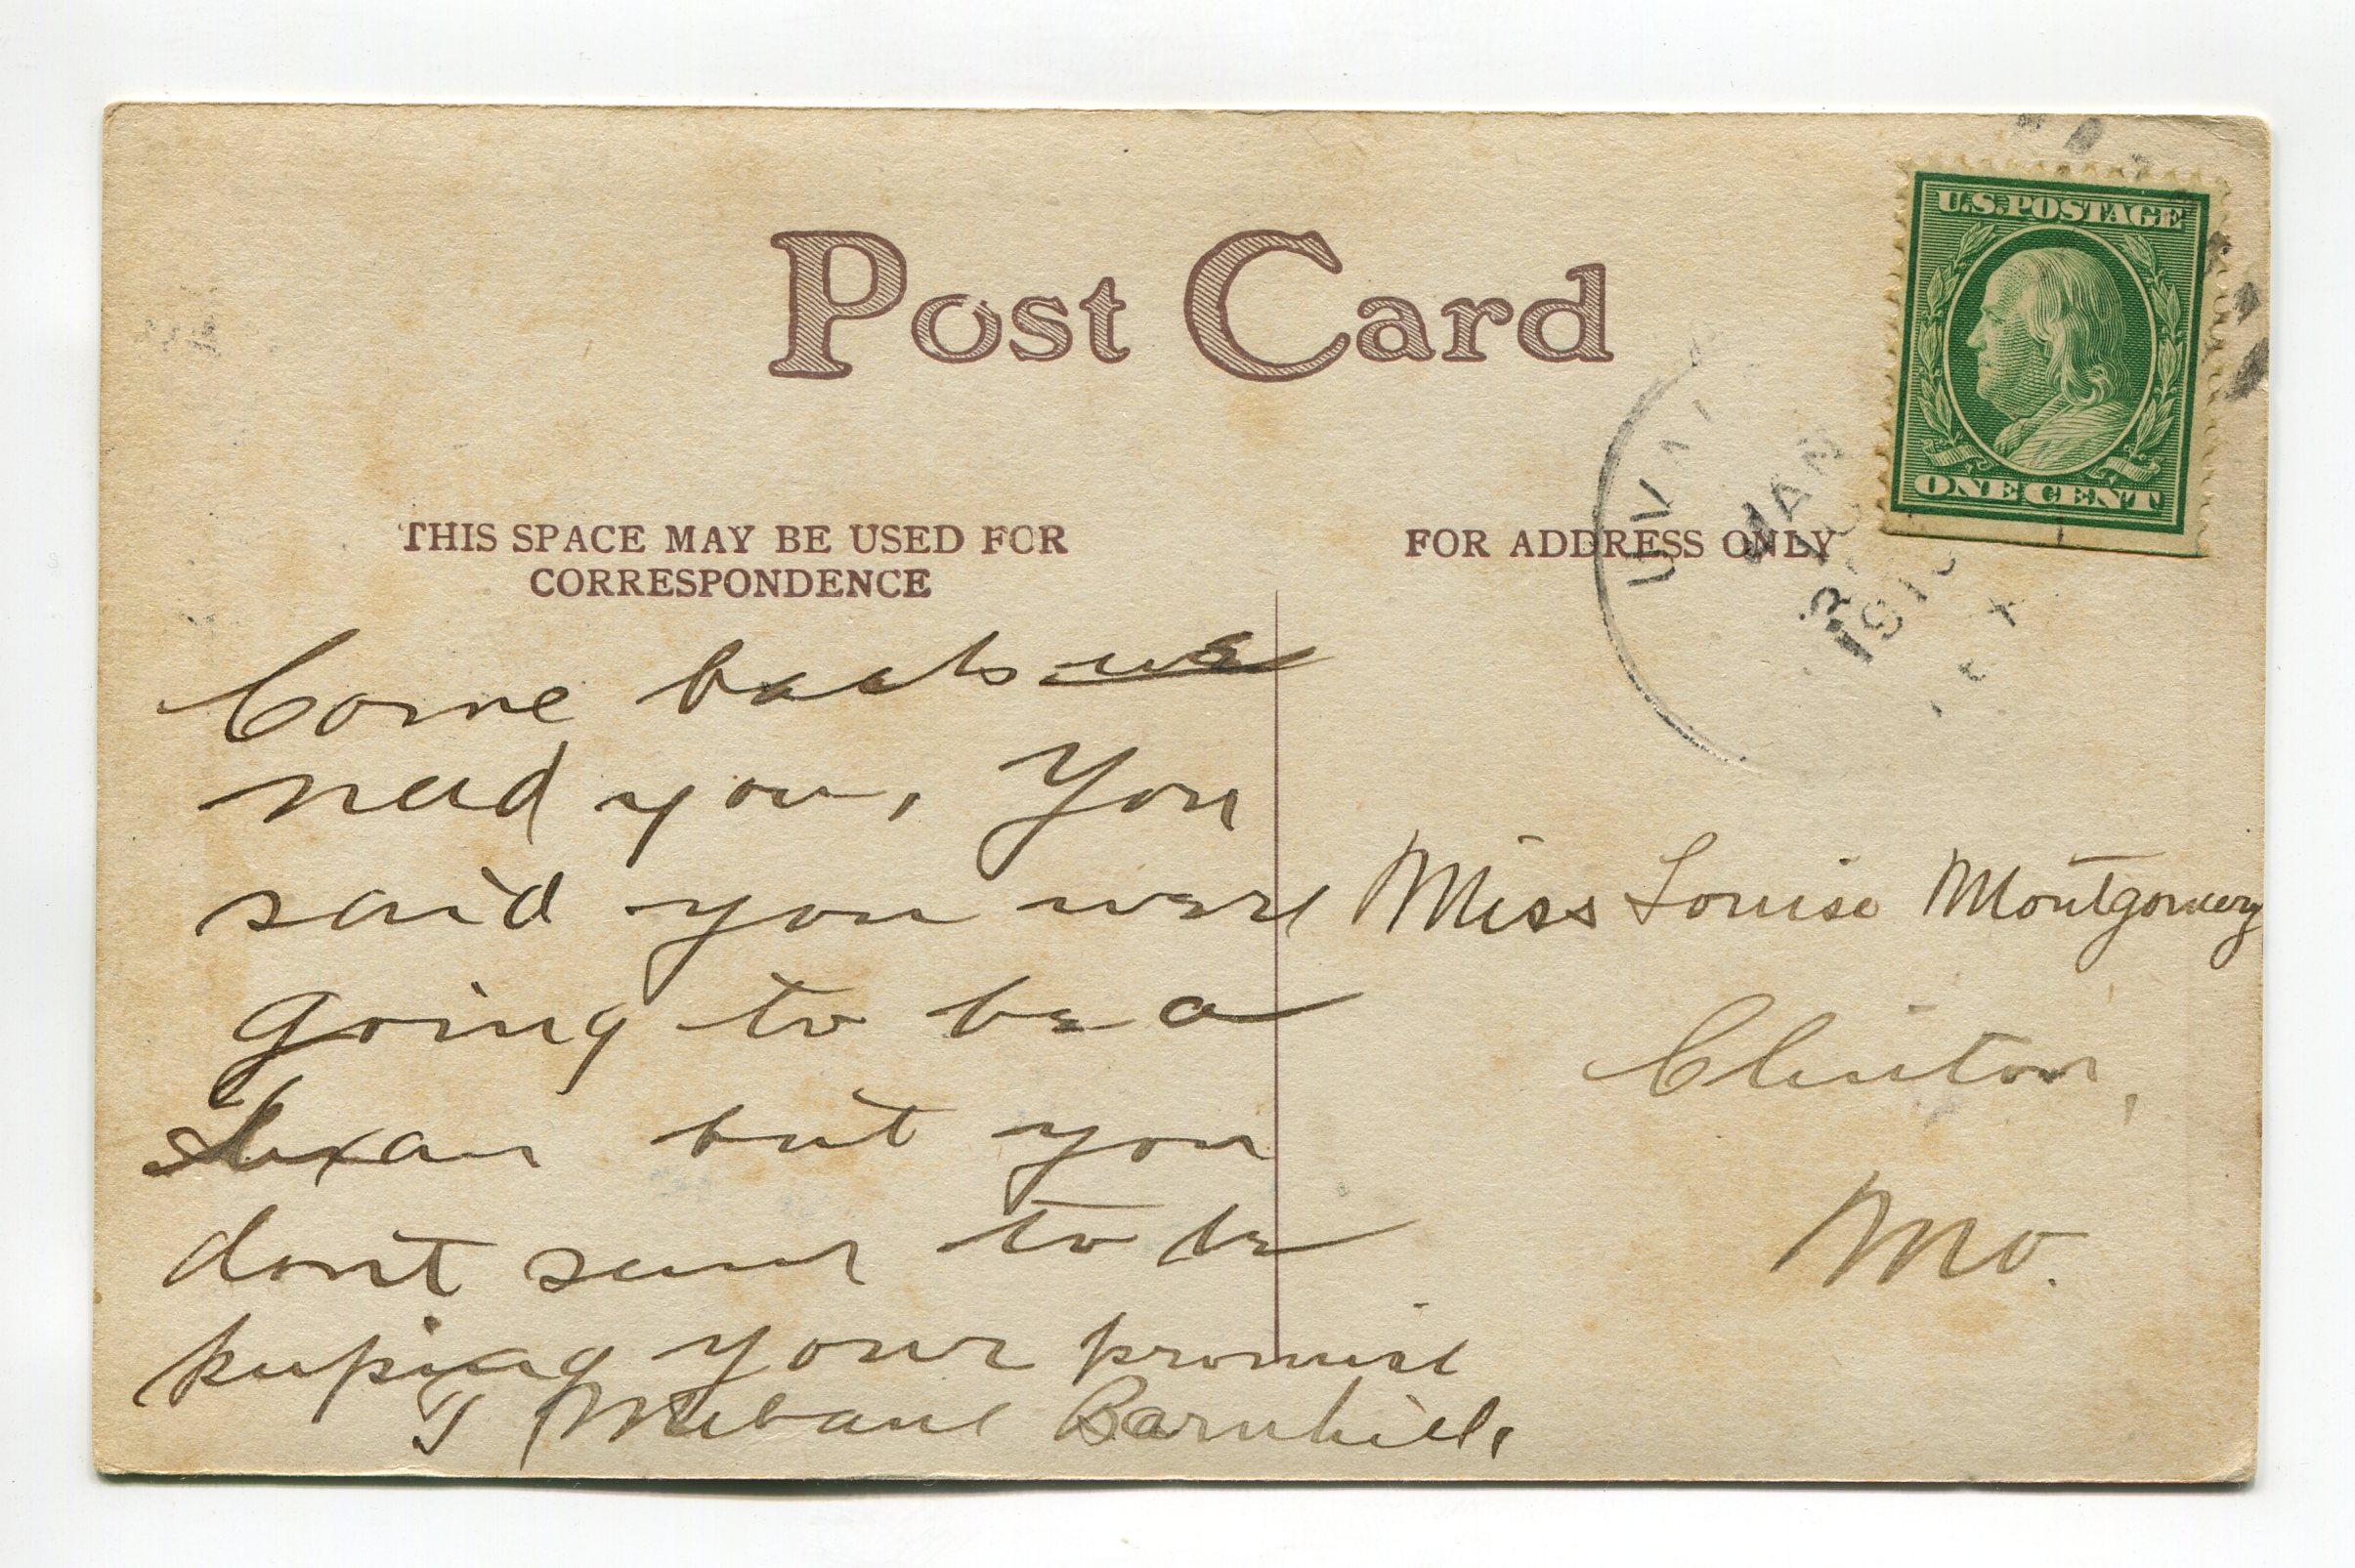 Post Card
U.S. POSTAGE
ONE CENT
THIS SPACE MAY BE USED FOR
CORRESPONDENCE
FOR ADDRESS ONLY
JAN
Come back we
need you, You
said you were
going to be a
Texan but you
dont seem to be
keeping your promise
T Mebane Barnhill,
Miss Louise Montgomery
Clinton,
Mo.